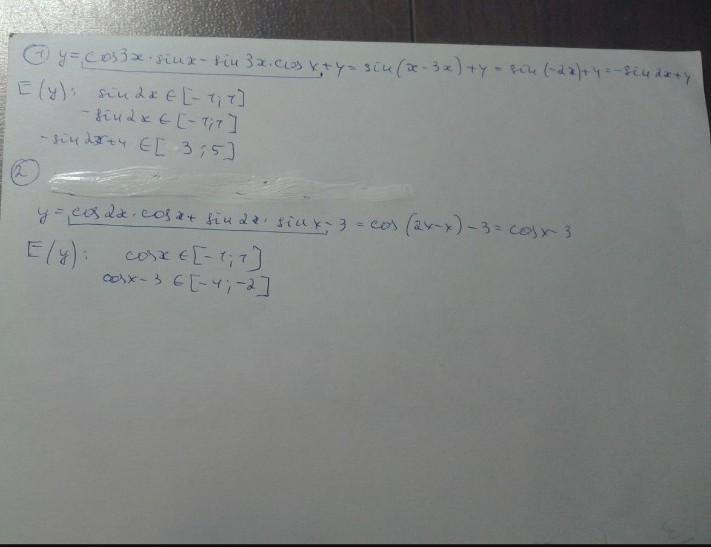 ① y = cos3x·sinx - sin3x·cosx + 4 = sin(x-3x) + 4 = sin(-2x) + 4 = -sin2x+4
E(y): sin2x ∈ [-1; 1]
-sin2x ∈ [-1; 1]
-sin2x+4 ∈ [3; 5]
②
y = cos2x·cosx + sin2x·sinx - 3 = cos(2x-x) - 3 = cosx-3
E(y): cosx ∈ [-1; 1]
cosx-3 ∈ [-4; -2]